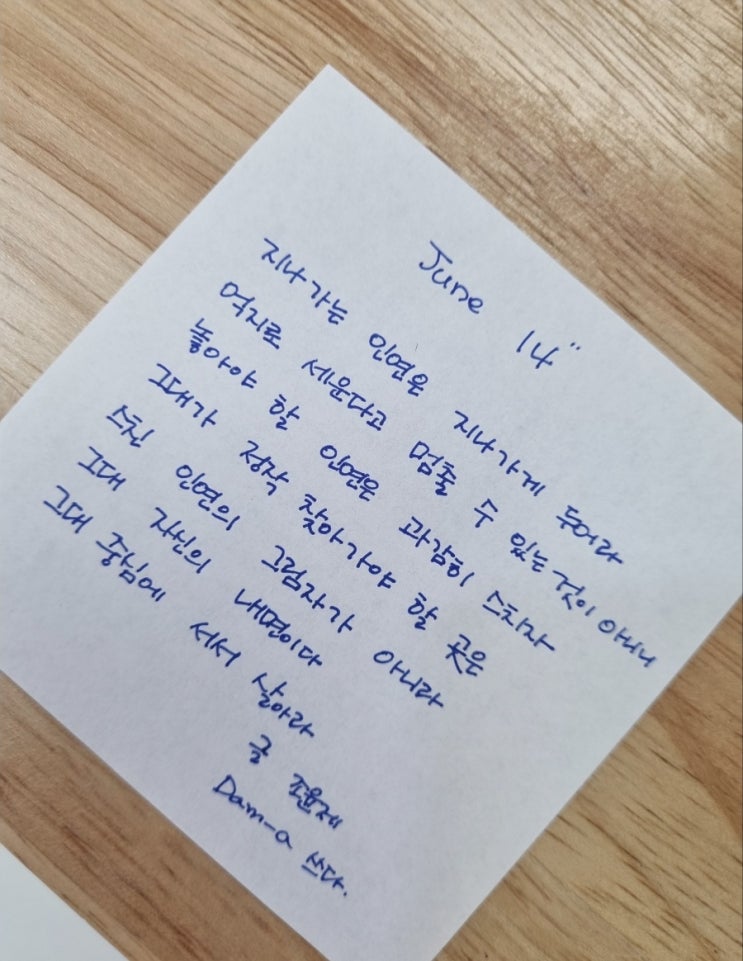 June 14"
지나가는 인연은 지나가게 두어라
억지로 세운다고 멈출 수 있는 것이 아니니
놓아야 할 인연은 과감히 스치자
그대가 정작 찾아가야 할 곳은
스친 인연의 그림자가 아니라
그대 자신의 내면이다
그대 중심에 서서 살아라
글 조윤제
Dam-a 쓰다.